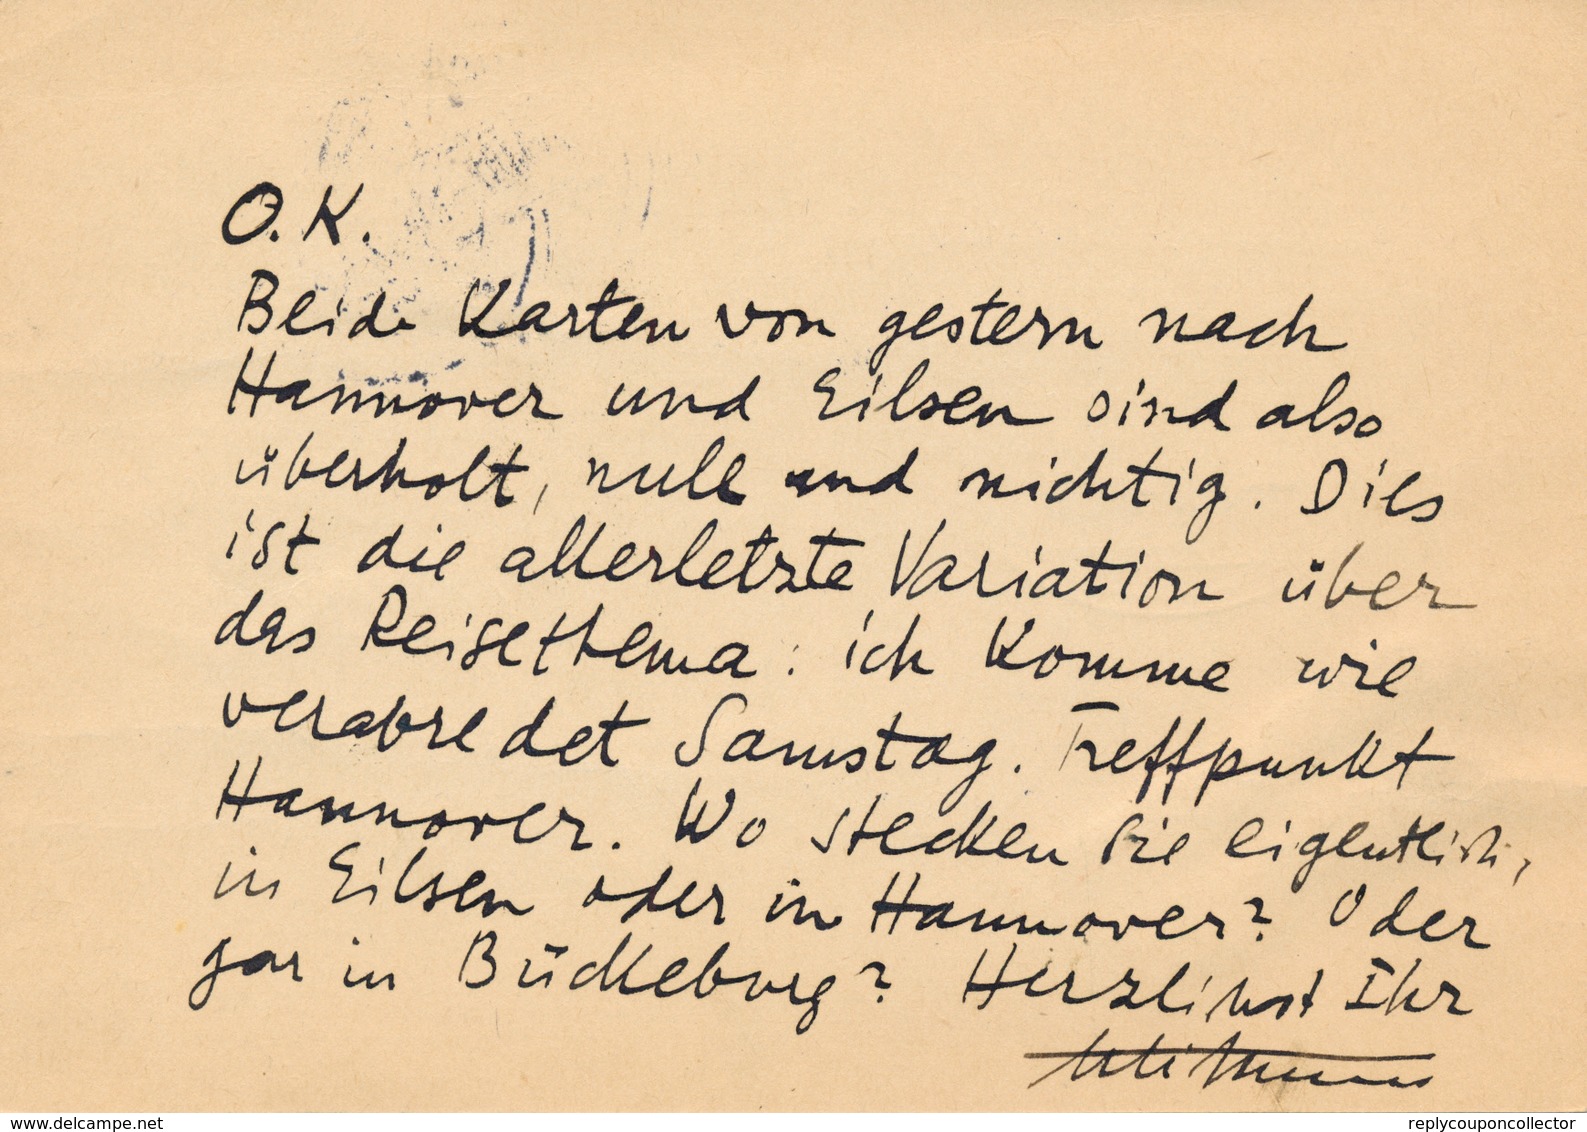 O.K.
Beide Karten von gestern nach
Hannover und Eilsen sind also
überholt, null und nichtig. Dies
ist die allerletzte Variation über
das Reisethema: ich komme wie
verabredet Samstag. Treffpunkt
Hannover. Wo stecken Sie eigentlich,
in Eilsen oder in Hannover? Oder
gar in Bückeburg? Herzlichst Ihr
www.delcampe.net
replycouponcollector